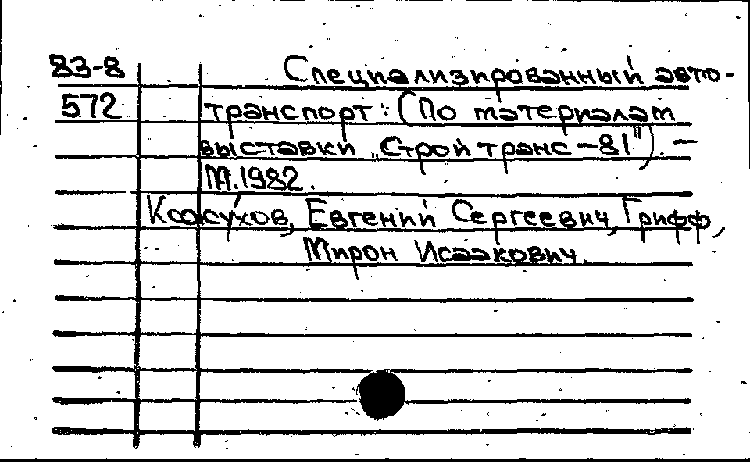 83-8 Специализированный авто-
572 транспорт: (По материалам
выставки „Стройтранс-81"). —
М.1982.
Кожухов, Евгений Сергеевич, Грифф,
Мирон Исаакович.